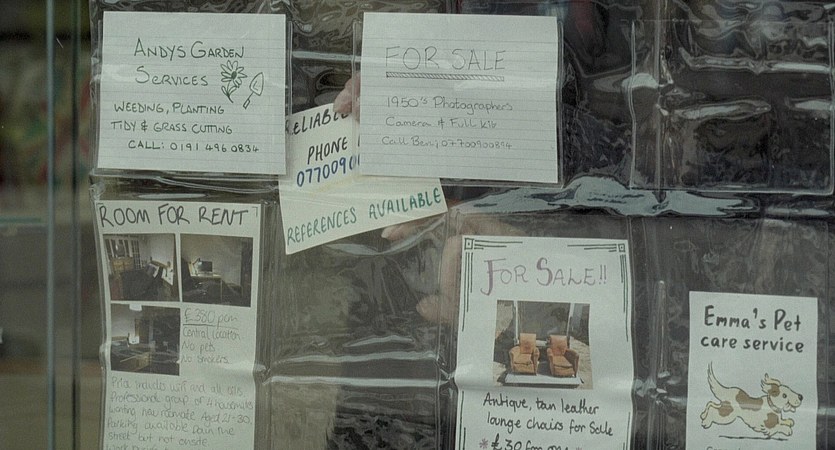 ANDYS GARDEN
SERVICES
WEEDING, PLANTING
TIDY & GRASS CUTTING
CALL: 0191 496 0834
FOR SALE
1950's Photographers
Camera & Full kit
Call Ben: 07700900814
RELIABLE
PHONE
077009
REFERENCES AVAILABLE
ROOM FOR RENT
£380 pcm
Central location
No pets
No smokers
Price includes wifi and all bills
Professional group of 4 housemates
Parking available down the
street but not onsite.
FOR SALE!!
Antique, tan leather
lounge chairs for Sale
Emma's Pet
care service